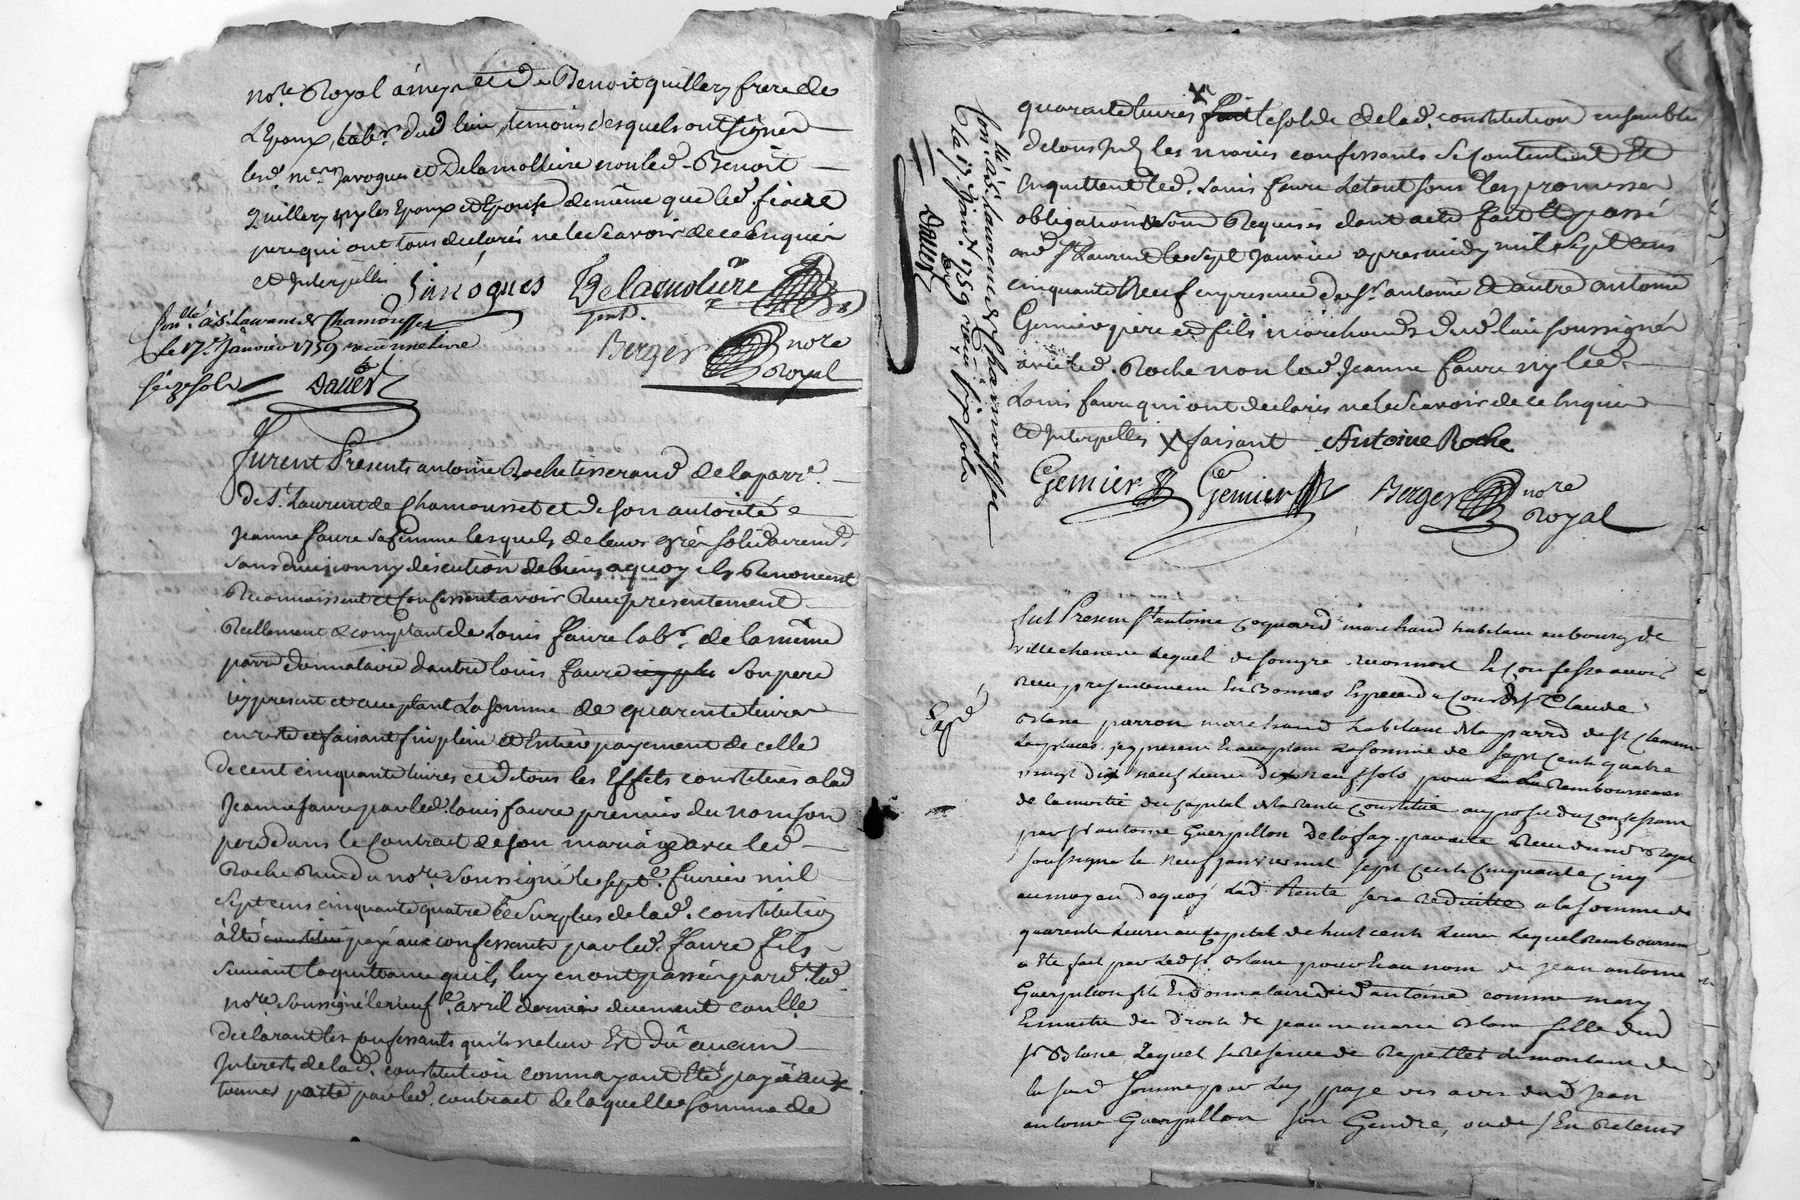 nore Royal à meys et de Benoit quillery frere de
L'Epoux, labr. dud lieu, temoins desquels ont signés
lesd. mers Javogues et Delamolliere non led. Benoit
quillery ny les Epoux et Epouse de même que led. fiacre
pere qui ont tous declarés ne le scavoir de ce Enquis
et Interpellés Javogues Delamoliere
Berger nore Royal
Conllé à St Laurent de Chamousset
le 17e Janvier 1759 reçu une livre
seize sols Dauer
furent Presents antoine Roche tisserand de la parre.
de St. Laurent de Chamousset et de son autorité
Jeanne faure sa femme lesquels de leurs grés solidairemt
sans division ny discution de biens a quoy ils Renoncent
Reconnoissent et Confessent avoir Reçu presentement
Reellement & comptant de Louis faure labr. de la même
parre donnataire d'autre Louis faure son pere
icy present et acceptant La somme de quarente livres
en reste et faisant fin plein et Entier payement de celle
de cent cinquante livres et de tous les Effets constitués a lad
Jeanne faure par led. Louis faure premier du nom son
pere dans le Contract de son mariage avec led.
Roche Reçu du nore. soussigné le sept e. fevrier mil
sept cens cinquante quatre le surplus de lad. constitution
à été payé aux confessants par led. faure fils
suivant la quittance qu'ils luy en ont passée pard. led.
nore soussigné le neuf e. avril dernier duement conllé
declarant les confessants qu'il ne leur Est dû aucun
Interests de lad. constitution comm ayant été payé aux
termes porté par led. contract de laquelle somme de
Conllé à St Laurent de Chamousset
le 17 Janvr. 1759 reçu six sols
Dauer
quarante livres X le solde de lad. constitution ensemble
de tous les maries confessants se contentent et
En quittent led. Louis faure le tout sous les promesses
obligations Requises dont acte fait et passé
aud St Laurent le sept Janvier apres midy mil sept cens
cinquante Neuf en presence de Sr. antoine et autre antoine
Gemier pere et fils marchands dud. lieu soussignés
avec led. Roche non lad. Jeanne faure ny led.
Louis faure qui ont declarés ne le scavoir de ce Enquis
et Interpellés X faisant Antoine Roche
Gemier Gemier Berger nore Royal
fut Present Sr antoine coquard marchand habitant au bourg de
ville chenêve Lequel de son gre reconnoit Et confesse avoir
Reçu presentement En Bonnes Especes de Cours de Sr Claude
Blanc parron marchand habitant de la parre de St Clement
les places, icy present & acceptant La somme de sept Cents quatre
vingt dix neuf livres dix neuf sols pour Le Remboursement
de la moitié du capital de la Rente Constituée au profit du confessant
par Sr antoine Guerpillon Delafay par acte Reçu du nore Royal
soussigné le Neuf janvier mil sept Cents Cinquante Cinq
au moyen de quoy lad. Rente sera Reduitte a la somme de
quarente livres au Capital de huit cents livres Lequel Remboursemt
a Ete fait par led. Sr. Blanc pour & au nom de Jean antoine
Guerpillon fils Et donnataire dud antoine comme mary
& maitre des Droits de Jeanne marie Blanc fille dud
Sr Blanc Lequel se Reserve de Repetter du montant de
la susd somme par Luy payé vis avis dud Jean
antoine Guerpillon son Gendre, ou de s'En Retenir
Expé